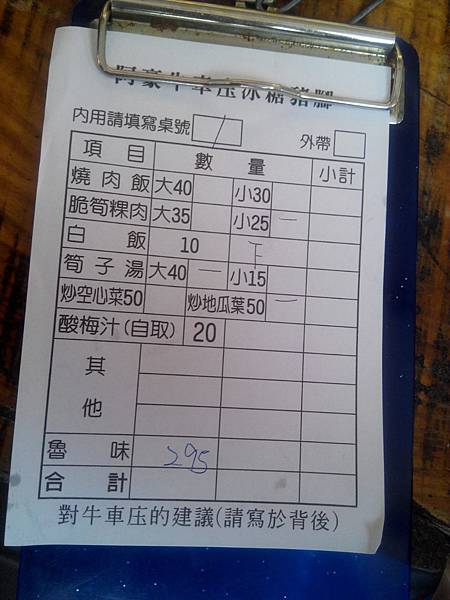 阿豪牛車庄冰糖豬腳
內用請填寫桌號 外帶
項目 數量 小計
燒肉飯 大40 小30
脆筍粿肉 大35 小25 一
白飯 10 下
筍子湯 大40 一 小15
炒空心菜50 炒地瓜葉50 一
酸梅汁(自取) 20
其他
魯味 295
合計
對牛車庄的建議(請寫於背後)